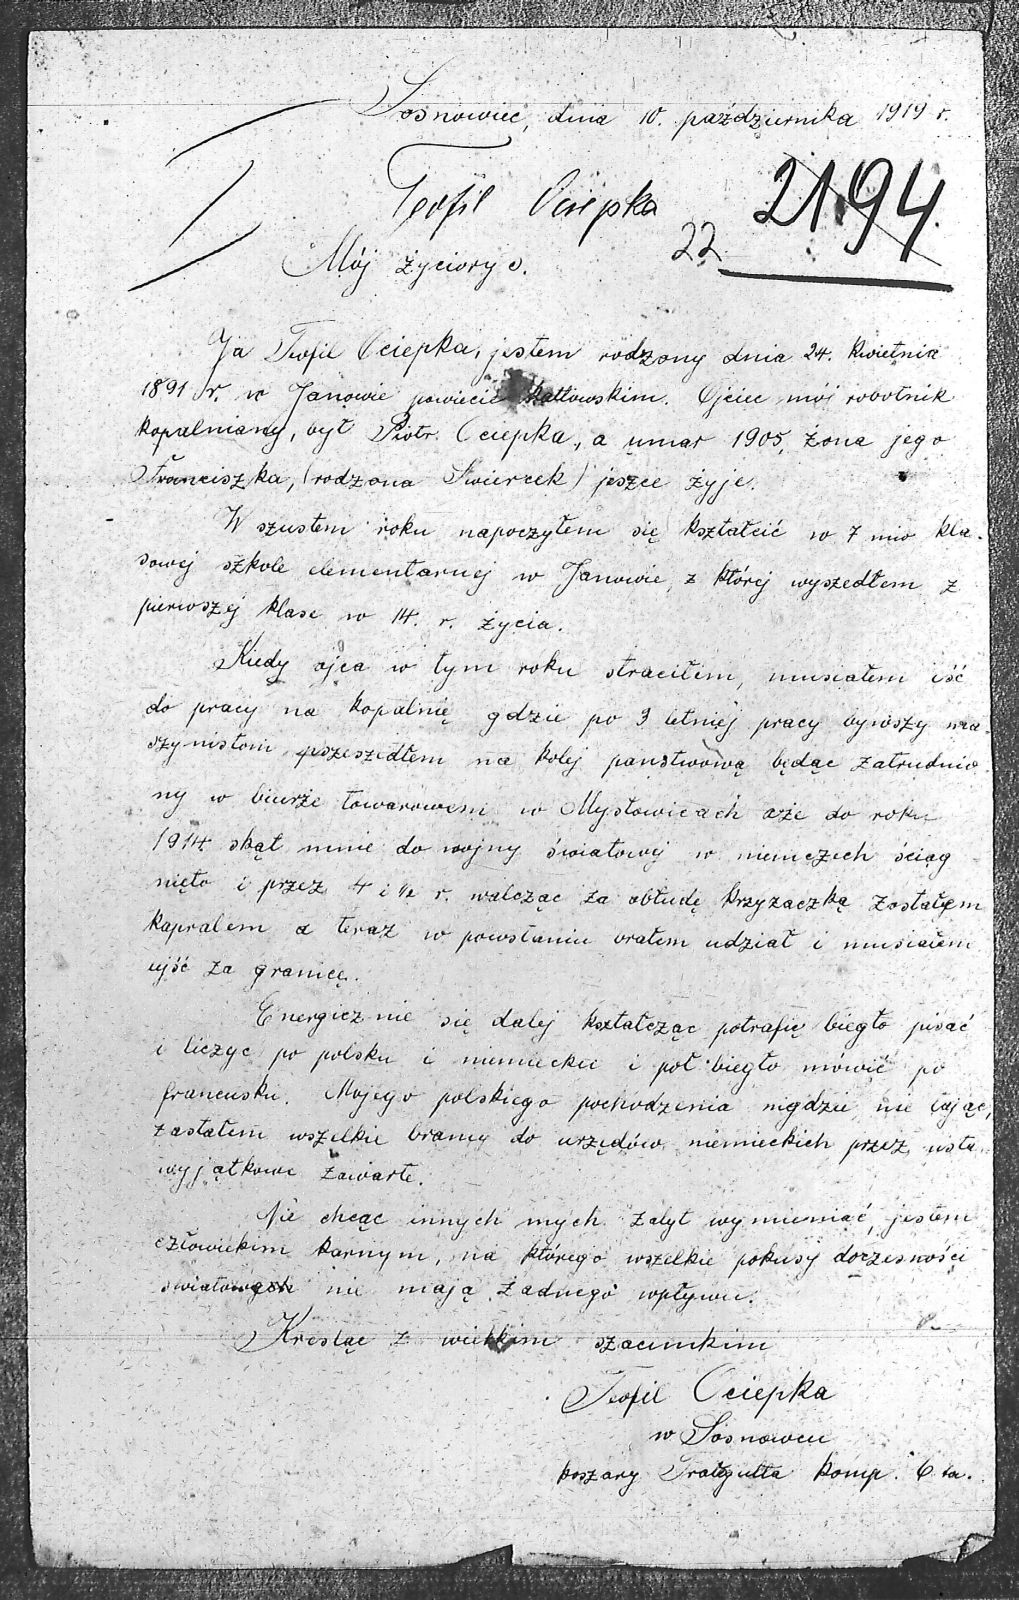 Sosnowiec, dnia 10. października 1919 r.
Teofil Ociepka
2194.
22
Mój życiorys.
Ja Teofil Ociepka, jestem rodzony dnia 24. kwietnia
1891 r. w Janowie powiecie Kattowskim. Ojciec mój robotnik
kopalniany, był Piotr Ociepka, a umar 1905, żona jego
Franciszka, (rodzona Swiercek) jeszce żyje.
W szustem roku napoczyłem się kształcić w 7 mio kla-
sowej szkole elementarnej w Janowie, z której wyszedłem z
pierwszej klase w 14. r. życia.
Kiedy ojca w tym roku straciłem, musiałem iść
do pracy na kopalnię gdzie po 3 letniej pracy bywszy ma-
szynistom pszeszedłem na kolej państwową będąc zatrudnio
ny w biurze towarowem w Mysłowicach aże do roku
1914. skąt mnie do wojny światowej w niemczech ściąg
nięto i przez 4 i 1/2 r. walcząc za obłudę krzyzaczką zostałem
kapralem a teraz w powstaniu brałem udział i musiałem
ujść za granicę.
Energicznie się dalej kształcząc potrafię biegło pisać
i liczyc po polsku i niemiecku i poł biegło mówić po
francusku. Mojego polskiego pochodzenia nigdzie nie tając,
zastałem wszelkie bramy do urzędów niemieckich przez usta
wyjątkowe zawarte.
Nie chcąc innych mych zalyt wymieniać, jestem
człowiekim karnym, na którego wszelkie pokusy doczesności
światowych nie mają żadnego wpływu.
Kresląc z wielkim szacunkim
Teofil Ociepka
w Sosnowcu
koszary Trałgutta komp. 6 ta.